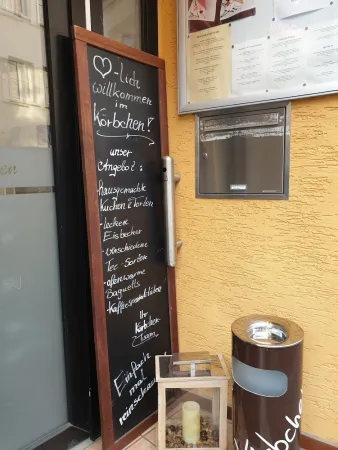 ♡-lich
willkommen
im
Körbchen!
unser
Angebot:
-hausgemachte
Kuchen & Torten
-leckere
Eisbecher
-verschiedene
Tee-Sorten
-ofenwarme
Baguetts
-Kaffeespezialitäten
Ihr
Körbchen
Team
Einfach
mal
reinschauen!
Körbchen